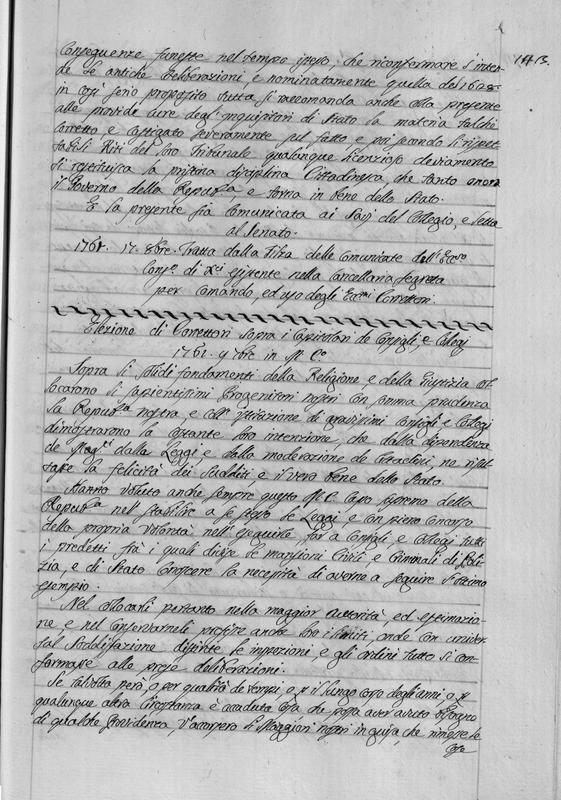 143.
Conseguenze funeste nel tempo stesso, che riconfermare s'inten-
de le antiche deliberazioni, e nominatamente quella del 1628
in così serio proposito tutta si raccomanda anche alla presente
alle provide cure degl'Inquisitori di Stato la materia talchè
corretto, e castigato severamente sul fatto, e poi secondo li rispet-
tabili Riti del loro Tribunale qualunque licenzioso deviamento
si restituisca la pristina disciplina Cittadinesca, che tanto onora
il Governo della Repub.ca, e torna in bene dello Stato.
E la presente sia comunicata ai Savj del Collegio, e letta
al Senato.
1761. 17. 8bre. Tratta dalla Filza delle Comunicate dell'Ecc.so
Cons.o di X.ci esistente nella Cancellaria Segreta
per comando, ed uso degli Ecc.mi Correttori.
Elezione di Correttori sopra i Capitolari de Consigli, e Collegj
1761. 9 7bre in M. C.o
Sopra li solidi fondamenti della Religione e della Giustizia col-
locarono li sapientissimi Progenitori nostri con somma prudenza
la Repub.ca nostra e coll'istituzione di gravissimi Consigli, e Collegj
dimostrarono la costante loro intenzione, che dalla dipendenza
de Mag.ti dalle Leggi e dalla moderazione de Cittadini, ne risul-
tasse la felicità dei Sudditi e il vero bene dello Stato.
Hanno voluto anche sempre questo M. C. Capo supremo della
Repub.ca nell'stabilire a se stesso le Leggi, e con pieno concorso
della propria volontà nell'eseguirle far a Consigli, e Collegj tutti
i predetti fra i quali divise le mansioni Civili, e Criminali di Poli-
zia, e di Stato conoscere la necessità di averne a seguire l'ottimo
esempio.
Nel collocarli pertanto nella maggior Autorità, ed estimazio-
ne, e nel conservarneli prefisse anche loro i limiti, onde con univer-
sal soddisfazione distinte le inspezioni, e gli ordini tutto si con-
formasse alle prese deliberazioni.
Se talvolta però, o per qualità de tempi, o p il lungo corso degl'anni, o p
qualunque altra circostanza è accaduta cosa che possa aver avuto bisogno
di qualche Providenza, v'accorsero li Maggiori nostri in guisa, che rimosse le
Cose